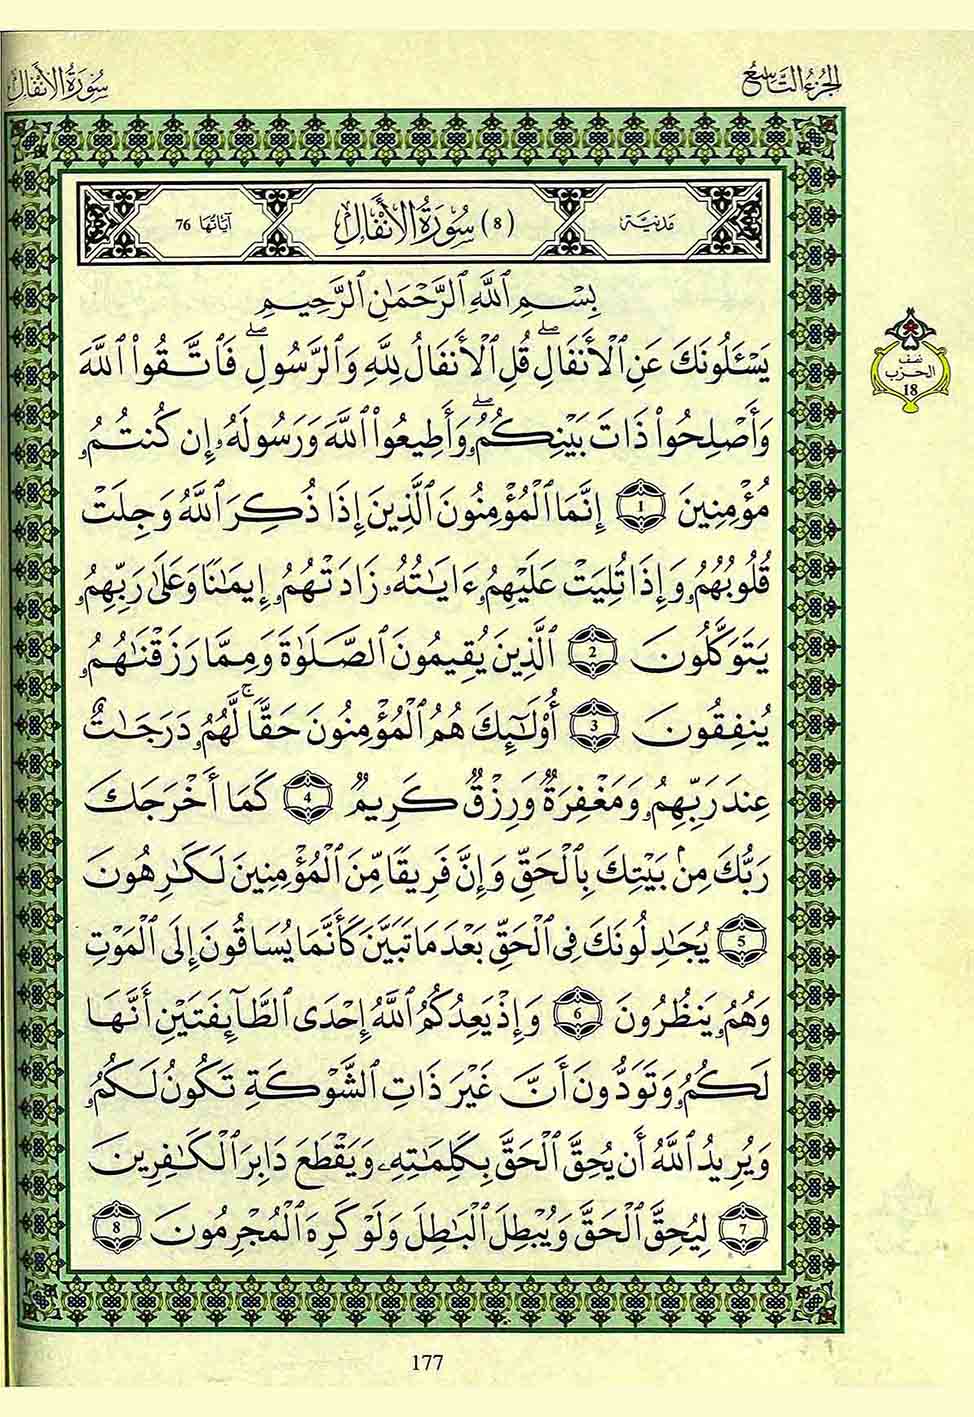 الجزء التاسع
سورة الأنفال
مدنية
(8) سُورَةُ الأَنْفَالِ
آياتها 76
بِسْمِ ٱللَّهِ ٱلرَّحْمَٰنِ ٱلرَّحِيمِ
يَسْـَٔلُونَكَ عَنِ ٱلْأَنفَالِۖ قُلِ ٱلْأَنفَالُ لِلَّهِ وَٱلرَّسُولِۖ فَٱتَّقُوا۟ ٱللَّهَ
نصف
الحزب
18
وَأَصْلِحُوا۟ ذَاتَ بَيْنِكُمُۥۖ وَأَطِيعُوا۟ ٱللَّهَ وَرَسُولَهُۥ إِن كُنتُمُۥ
مُؤْمِنِينَ 1 إِنَّمَا ٱلْمُؤْمِنُونَ ٱلَّذِينَ إِذَا ذُكِرَ ٱللَّهُ وَجِلَتْ
قُلُوبُهُمُۥ وَإِذَا تُلِيَتْ عَلَيْهِمُۥ ءَايَٰتُهُۥ زَادَتْهُمُۥ إِيمَٰنًا وَعَلَىٰ رَبِّهِمُۥ
يَتَوَكَّلُونَ 2 ٱلَّذِينَ يُقِيمُونَ ٱلصَّلَوٰةَ وَمِمَّا رَزَقْنَٰهُمُۥ
يُنفِقُونَ 3 أُو۟لَٰٓئِكَ هُمُ ٱلْمُؤْمِنُونَ حَقًّاۚ لَّهُمُۥ دَرَجَٰتٌ
عِندَ رَبِّهِمُۥ وَمَغْفِرَةٌ وَرِزْقٌ كَرِيمٌ 4 كَمَا أَخْرَجَكَ
رَبُّكَ مِنۢ بَيْتِكَ بِٱلْحَقِّ وَإِنَّ فَرِيقًا مِّنَ ٱلْمُؤْمِنِينَ لَكَٰرِهُونَ
5 يُجَٰدِلُونَكَ فِى ٱلْحَقِّ بَعْدَ مَا تَبَيَّنَ كَأَنَّمَا يُسَاقُونَ إِلَى ٱلْمَوْتِ
وَهُمُۥ يَنظُرُونَ 6 وَإِذْ يَعِدُكُمُ ٱللَّهُ إِحْدَى ٱلطَّآئِفَتَيْنِ أَنَّهَا
لَكُمُۥ وَتَوَدُّونَ أَنَّ غَيْرَ ذَاتِ ٱلشَّوْكَةِ تَكُونُ لَكُمُۥ
وَيُرِيدُ ٱللَّهُ أَن يُحِقَّ ٱلْحَقَّ بِكَلِمَٰتِهِۦ وَيَقْطَعَ دَابِرَ ٱلْكَٰفِرِينَ
7 لِيُحِقَّ ٱلْحَقَّ وَيُبْطِلَ ٱلْبَٰطِلَ وَلَوْ كَرِهَ ٱلْمُجْرِمُونَ 8
177